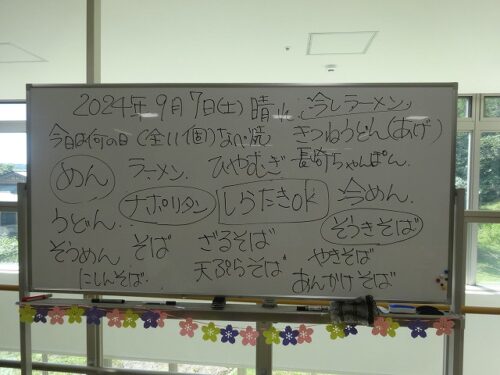 2024年9月7日(土)晴れ 冷しラーメン
今日は何の日(全11個)なべ焼 きつねうどん(あげ)
めん ラーメン. ひやむぎ 長崎ちゃんぽん.
ナポリタン しらたきok 冷めん.
うどん. ぞうきそば
そうめん そば ざるそば やきそば
にしんそば.. 天ぷらそば あんかけそば